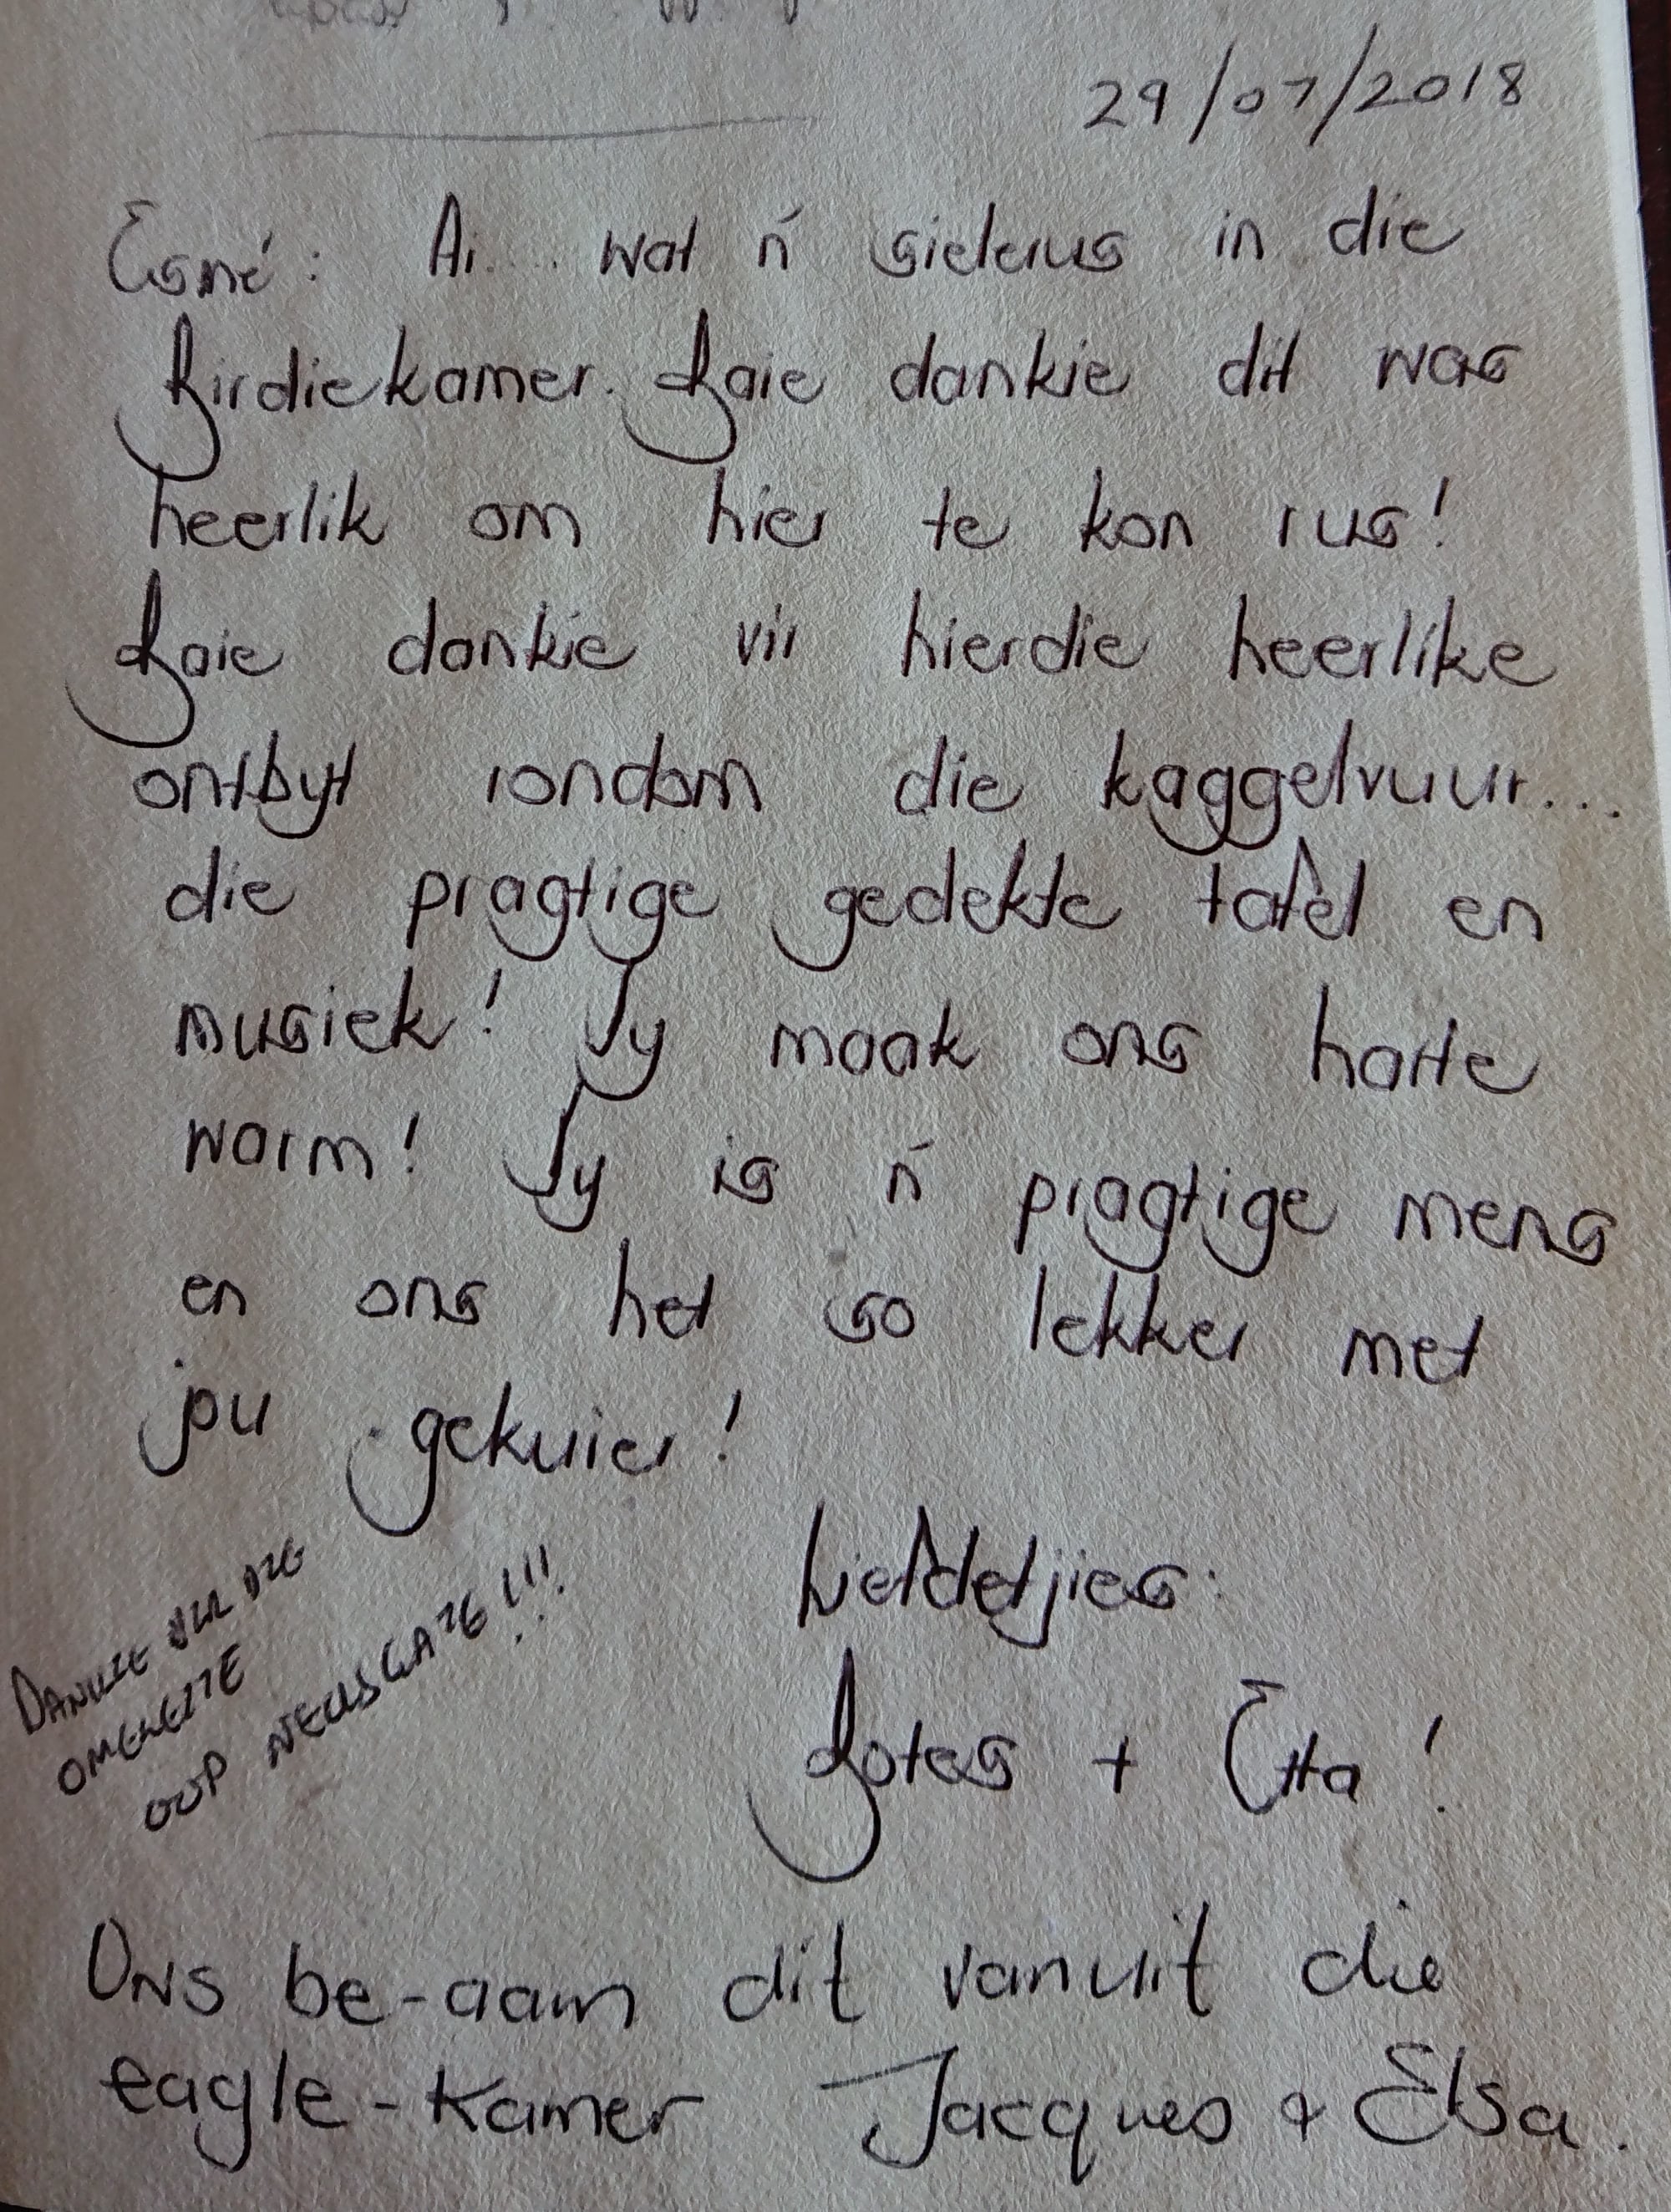 29/07/2018
Esmé: Ai.... wat ń sielerus in die
Birdiekamer. Baie dankie dit was
heerlik om hier te kon rus!
Baie dankie vir hierdie heerlike
ontbyt rondom die kaggelvuur....
die pragtige gedekte tafel en
musiek! Jy maak ons harte
warm! Jy is ń pragtige mens
en ons het so lekker met
jou gekuier!
Liefdetjies:
Botes + Etta!
DANKIE VIR DIE
OMELETTE
OOP NEUSGATE!!!
Ons be-aam dit vanuit die
eagle-Kamer Jacques & Elsa.